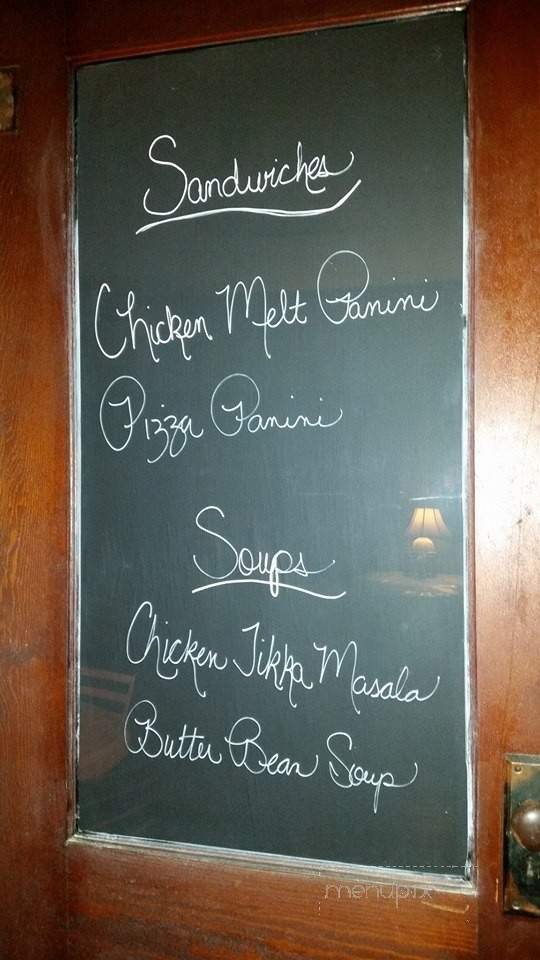 Sandwiches
Chicken Melt Panini
Pizza Panini
Soups
Chicken Tikka Masala
Butter Bean Soup
menupix